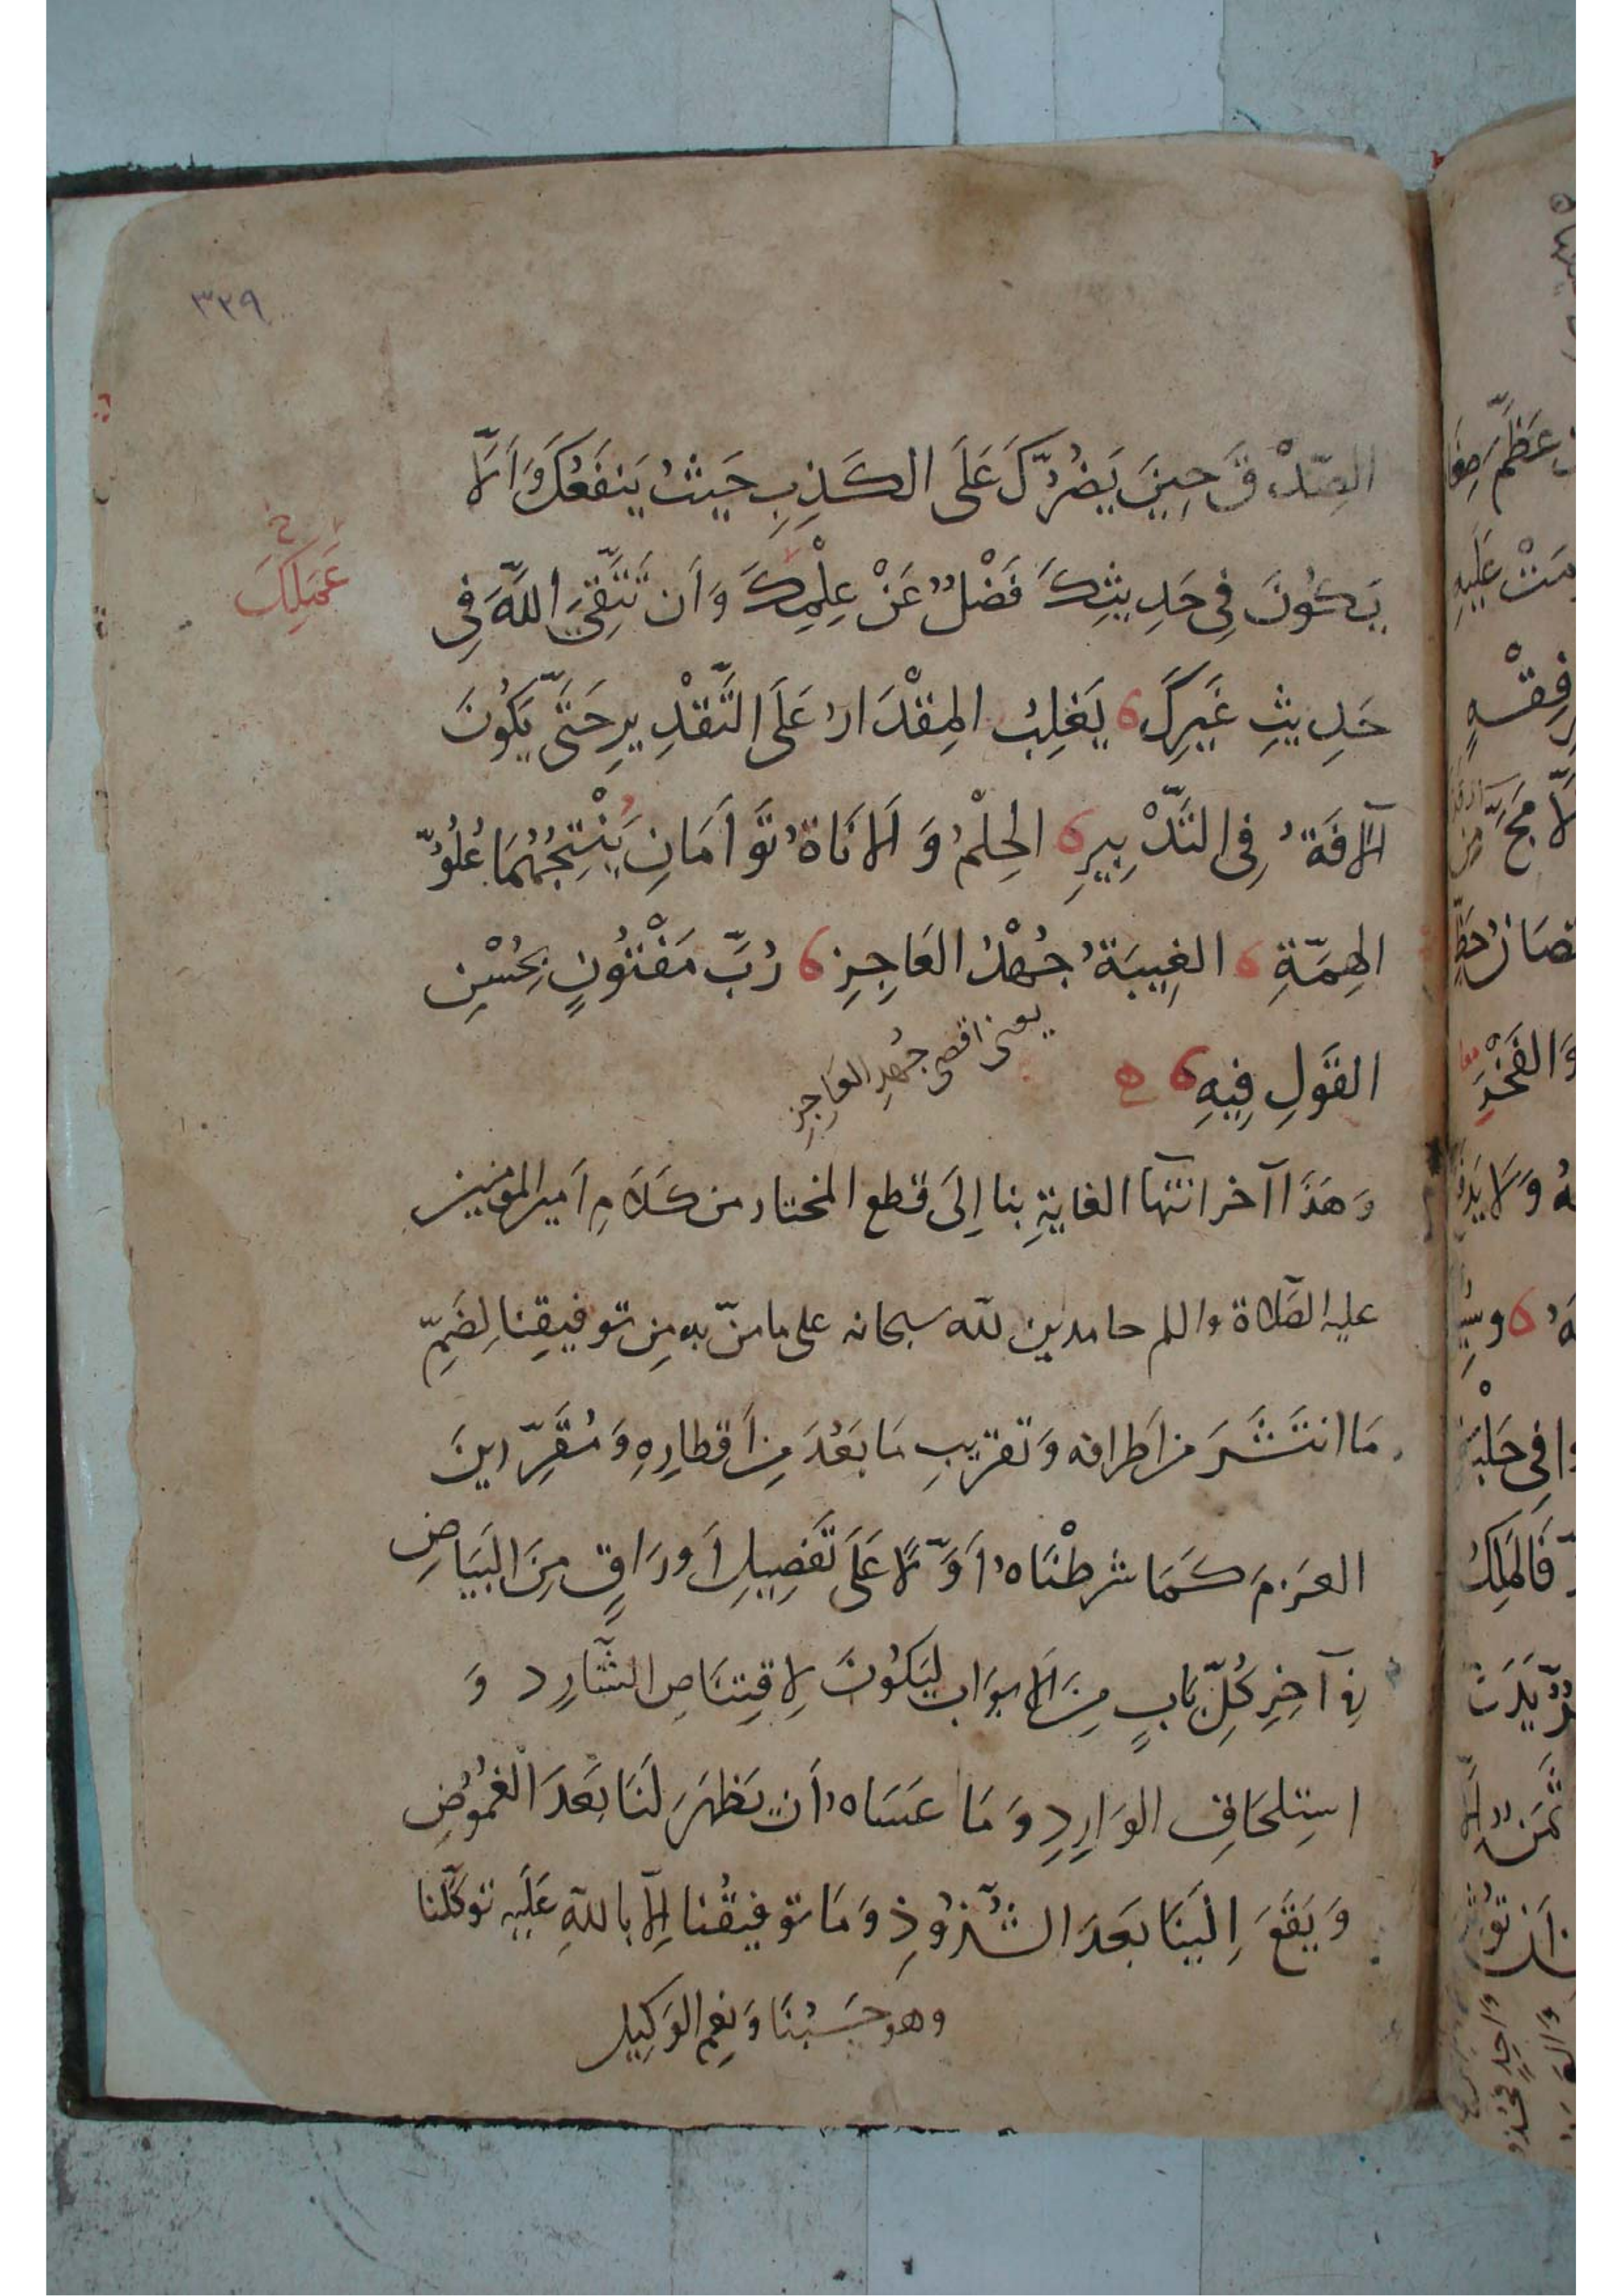 ٣٢٩
الصِّدْقَ حِينَ يَضُرُّكَ عَلَى الكَذِبِ حَيْثُ يَنفَعُكَ وَأَلَّا
يَكُونَ فِي حَدِيثِكَ فَضْلٌ عَنْ عِلْمِكَ وَأَن تَتَّقِيَ اللَّهَ فِي
عَمَلِكَ خ
حَدِيثِ غَيرِكَ يَغلِبُ المِقْدَارُ عَلَى التَّقْدِيرِ حَتَّى يَكُونَ
الآفَةُ فِي التَّدْبِيرِ الحِلْمُ وَالأَنَاةُ تَوَأمَانِ يُنْتِجُهُمَا عُلُوُّ
الهِمَّةِ الغِيبَةُ جُهْدُ العَاجِزِ رُبَّ مَفْتُونٍ بِحُسْنِ
القَولِ فِيهِ
يعنى اقصى جُهدِ العَاجِزِ
وَهَذَا آخر انتهآ الغايةِ بنا إِلَى قطع المختار من كَلَامِ أَمير المومنين
عليه الصّلاة والسلم حامدين لله سبحانه على ما منّ به مِن توفيقِنا لِضَمِّ
مَا انتَشَرَ من أَطرافه وَتقريبِ مَا بَعُدَ مِن أَقطارِهِ وَمُقَرِّرِينَ
العَزمَ كَمَا شرطْنَاهُ أَوَّلًا عَلَى تَفضِيلِ أَورَاقٍ مِنَ البَيَاضِ
فِي آخِرِ كُلِّ بَابٍ مِنَ الأَبوَابِ لِيَكُونَ لِاقتِنَاصِ الشَّارِدِ وَ
استِلحَاقِ الوَارِدِ وَمَا عَسَاهُ أَن يَظهَرَ لَنَا بَعدَ الغُمُوضِ
وَيَقَعَ إِلَينَا بَعدَ الشُّذُوذِ وَمَا توفيقُنا إِلَّا بِاللهِ عَلَيهِ توكّلنا
وهو حَسبُنَا وَنِعم الوَكِيل